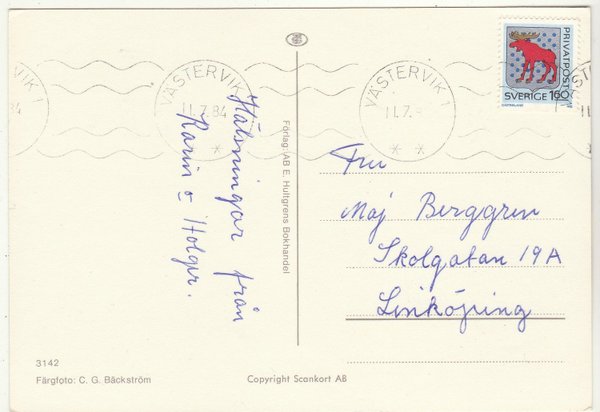 VÄSTERVIK 1
11.7.84
Hälsningar från
Karin o Holger.
3142
Färgfoto: C. G. Bäckström
Förlag: AB E. Hultgrens Bokhandel
Copyright Scankort AB
PRIVATPOST
SVERIGE 160
VÄSTERVIK 1
11.7.
Fru
Maj Berggren
Skolgatan 19A
Linköping